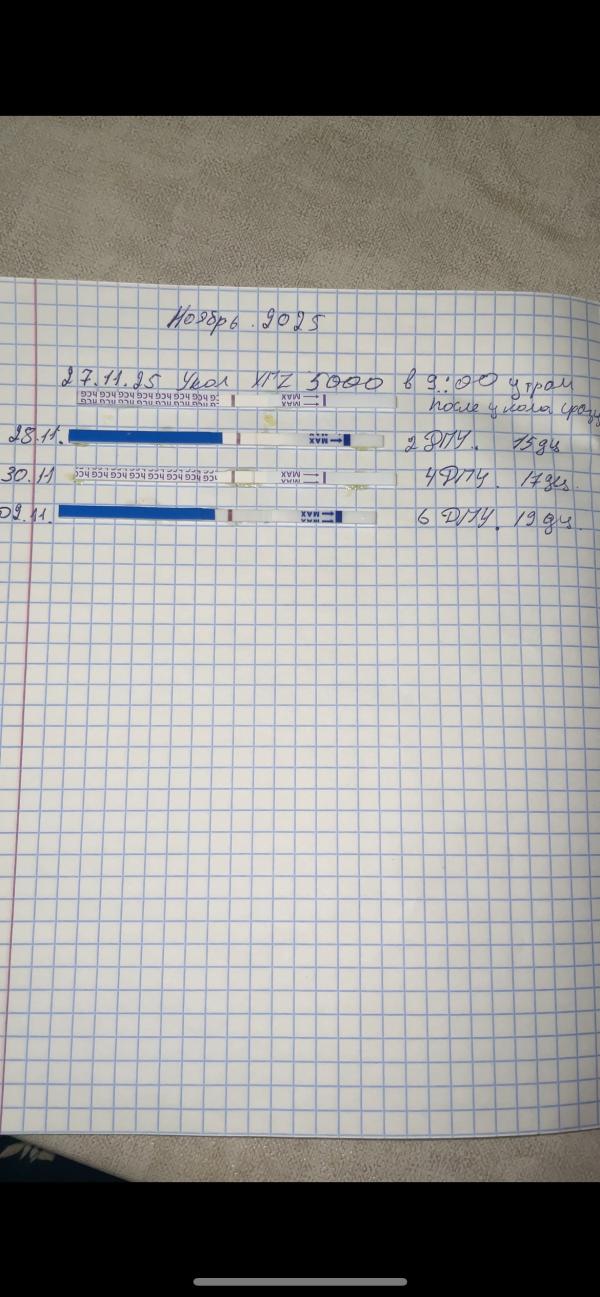 Ноябрь. 2025
27.11.25 Укол ХГЧ 5000 в 9:00 утром
hCG hCG hCG hCG hCG hCG hCG hCG MAX после укола сразу
28.11. MAX 2 ДПУ. 15 дц
30.11 hCG hCG hCG hCG hCG hCG hCG hCG MAX 4 ДПУ. 17 дц.
02.11. MAX 6 ДПУ. 19 дц.